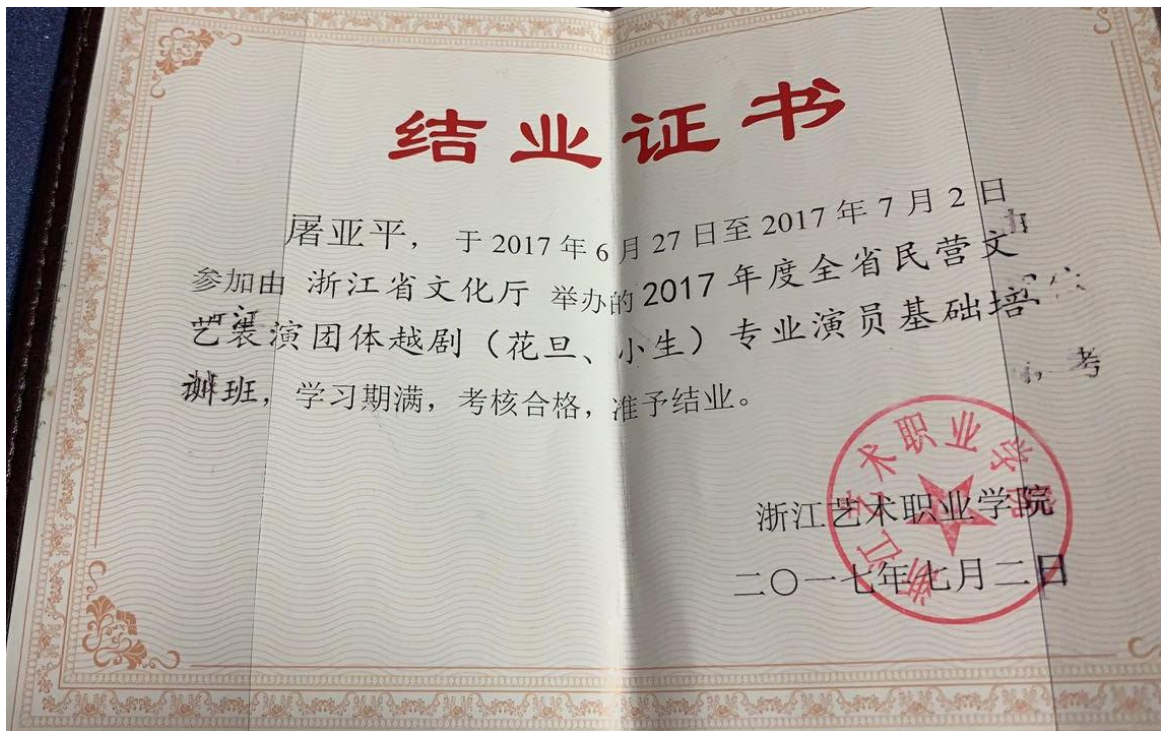 结业证书
屠亚平，于 2017 年 6 月 27 日至 2017 年 7 月 2 日
参加由 浙江省文化厅 举办的 2017 年度全省民营文
艺表演团体越剧（花旦、小生）专业演员基础培
训班，学习期满，考核合格，准予结业。
考
浙江艺术职业学院
浙江艺术职业学院
二〇一七年七月二日